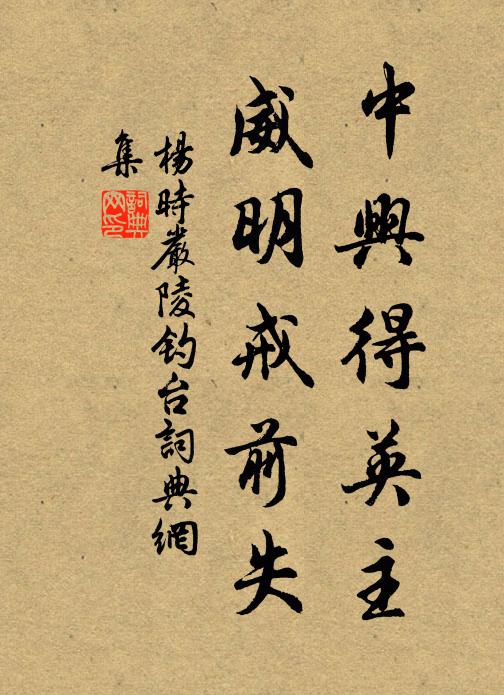 中興得英主
威明戒前失
楊時嚴陵釣台詞典網
集
詞典
网印